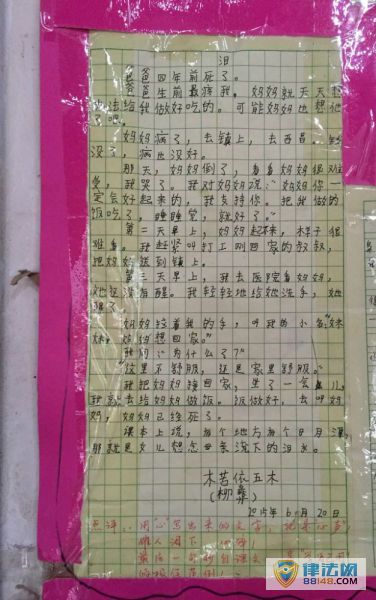 泪
爸爸四年前死了。
爸爸生前最疼我，妈妈就天天想
办法给我做好吃的。可能妈妈也想他
了吧。
妈妈病了，去镇上，去西昌。钱
没了，病也没好。
那天，妈妈倒了，看看妈妈很难
受，我哭了。我对妈妈说：“妈妈你一
定会好起来的，我支持你。把我做的
饭吃了，睡睡觉，就好了。”
第二天早上，妈妈起来，样子很
难看。我赶紧叫打工刚回家的叔叔，
把妈妈送到镇上。
第三天早上，我去医院看妈妈，
她还没有醒。我轻轻地给她洗手，她
醒了。
妈妈拉着我的手，叫我的小名：“妹
妹，妈妈想回家。”
我问：“为什么了？”
“这里不舒服，还是家里舒服。”
我把妈妈接回家，坐了一会儿，
我就去给妈妈做饭。饭做好，去叫妈
妈，妈妈已经死了。
课本上说，有个地方有个日月潭，
那就是女儿想念母亲流下的泪水。
木苦依五木
(柳彝)
2015年6月20日
点评：用心写出来的文字
催人泪下
最后一句
律法网
88148.com